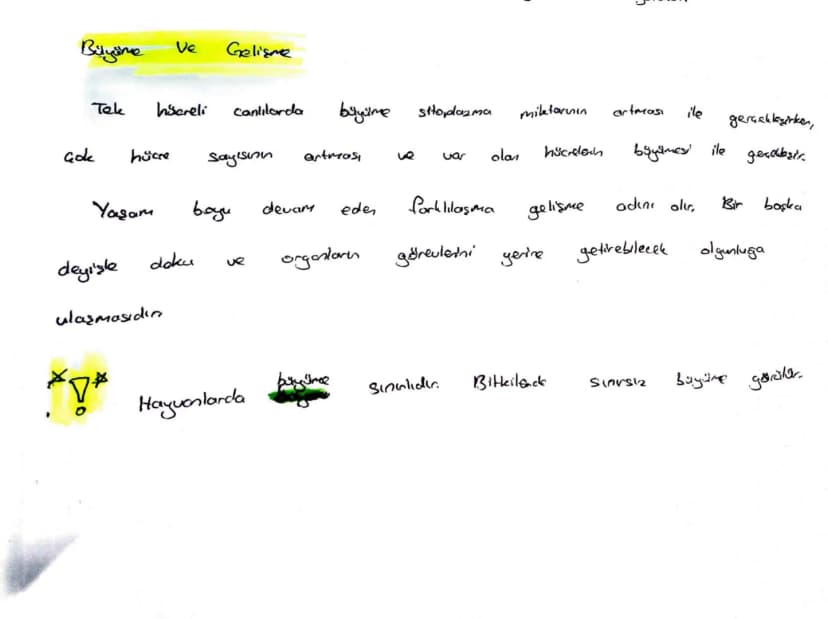 Büyüme ve Gelişme
Tek hücreli canlılarda büyüme sitoplazma miktarının artması ile gerçekleşirken,
Çok hücre sayısının artması ve var olan hücrelerin büyümesi ile gerçekleşir.
Yaşam boyu devam eden farklılaşma gelişme adını alır. Bir başka
deyişle doku ve organların görevlerini yerine getirebilecek olgunluğa
ulaşmasıdır.
büyüme
Hayvanlarda sınırlıdır. Bitkilerde sınırsız büyüme görülür.